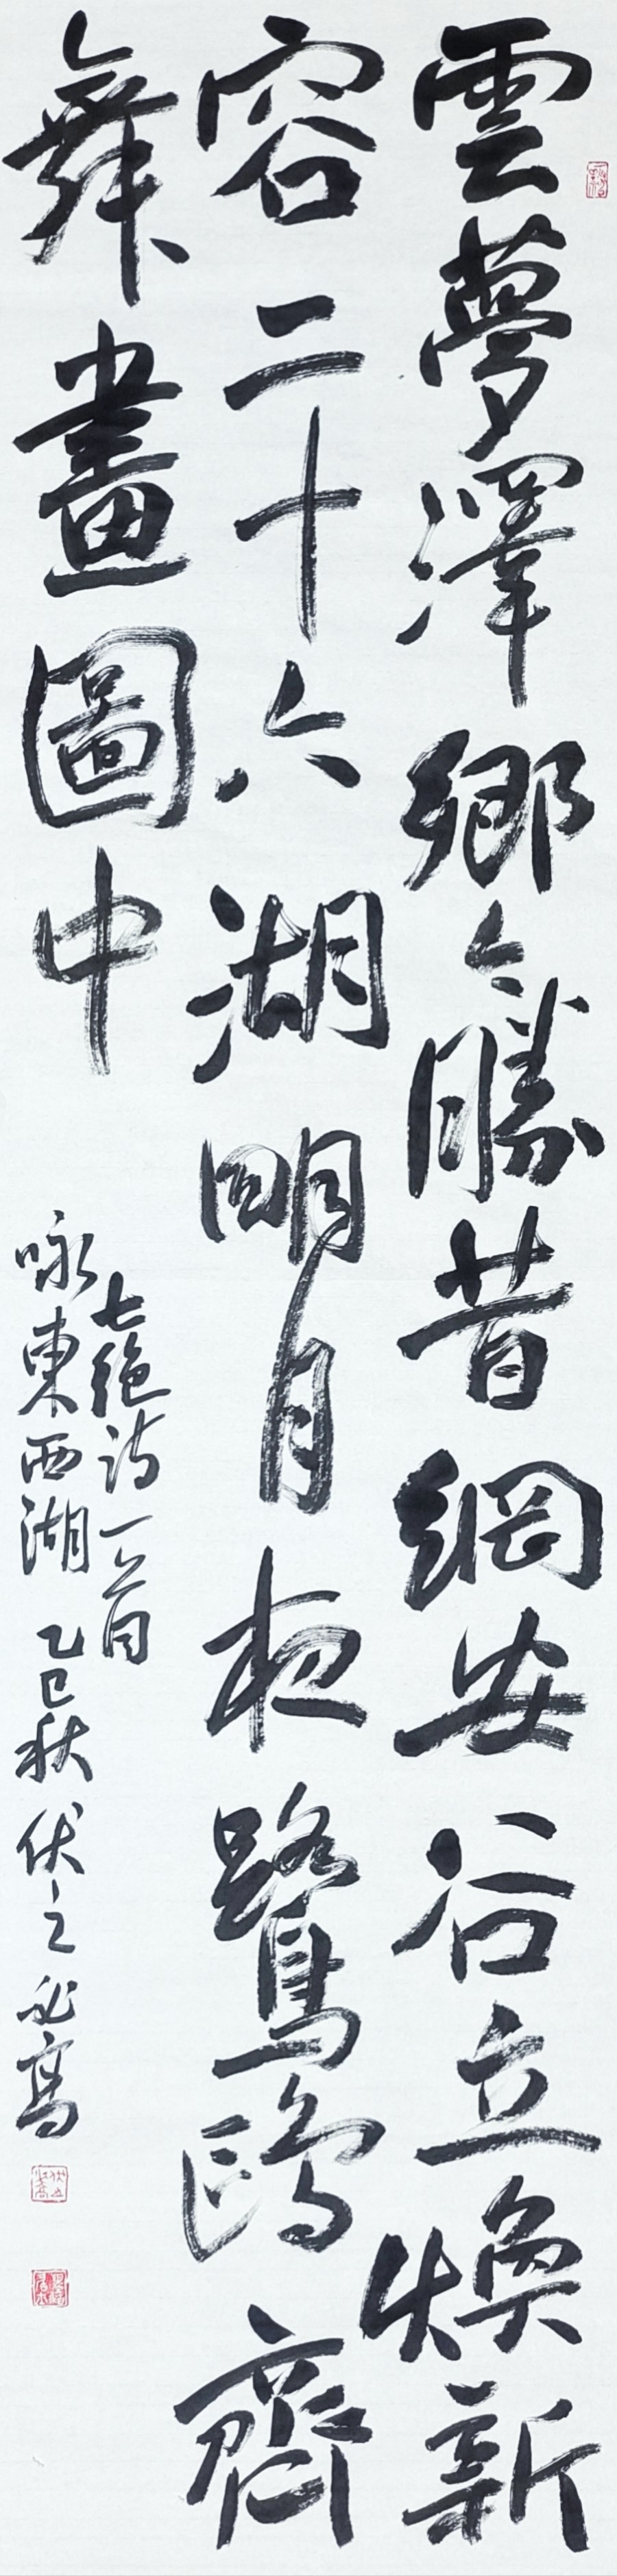 雲夢澤鄉今勝昔網安谷立煥新
容二十六湖明月夜鷺鷗齊
舞畫圖中
七絕詩一首
咏東西湖 乙巳秋 伏之